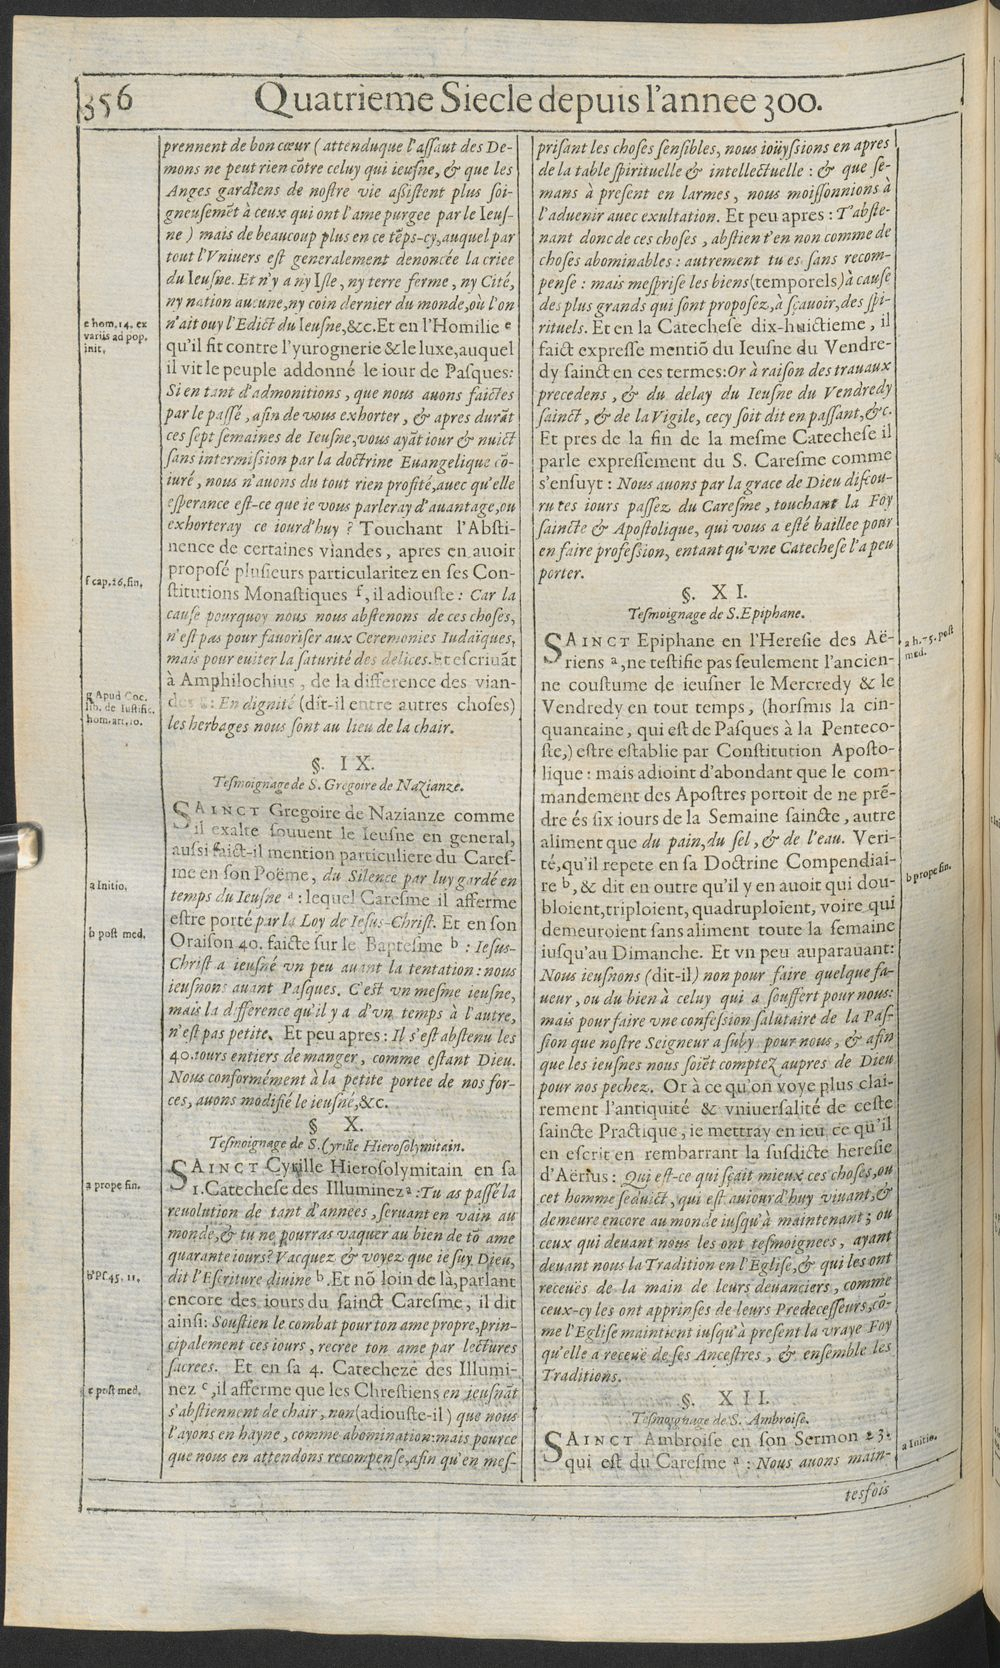 356
Quatrieme Siecle depuis l'annee 300.
prennent de bon cœur (attenduque l'assaut des De-
mons ne peut rien cõtre celuy qui ieusne, & que les
Anges gardiens de nostre vie assistent plus soi-
gneusemẽt à ceux qui ont l'ame purgee par le Ieus-
ne) mais de beaucoup plus en ce tẽps-cy, auquel par
tout l'Vniuers est generalement denoncée la criee
du Ieusne. Et n'y a ny Isle, ny terre ferme, ny Cité,
ny nation aucune, ny coin dernier du monde, où l'on
n'ait ouy l'Edict du Ieusne, &c. Et en l'Homilie e
qu'il fit contre l'yurognerie & le luxe, auquel
il vit le peuple addonné le iour de Pasques:
Si en tant d'admonitions, que nous auons faictes
par le passé, afin de vous exhorter, & apres durãt
ces sept semaines de Ieusne, vous ayãt iour & nuict
sans intermission par la doctrine Euangelique cõ-
iuré, nous n'auons du tout rien profité, auec qu'elle
esperance est-ce que ie vous parleray d'auantage, ou
exhorteray ce iourd'huy? Touchant l'Absti-
nence de certaines viandes, apres en auoir
proposé plusieurs particularitez en ses Con-
stitutions Monastiques f, il adiouste: Car la
cause pourquoy nous nous abstenons de ces choses,
n'est pas pour fauoriser aux Ceremonies Iudaïques,
mais pour euiter la saturité des delices. Et escriuãt
à Amphilochius, de la difference des vian-
des g: En dignité (dit-il entre autres choses)
les herbages nous sont au lieu de la chair.
§. IX.
Tesmoignage de S. Gregoire de Nazianze.
SAINCT Gregoire de Nazianze comme
il exalte souuent le Ieusne en general,
aussi faict-il mention particuliere du Cares-
me en son Poëme, du Silence par luy gardé en
temps du Ieusne a: lequel Caresme il afferme
estre porté par la Loy de Iesus-Christ. Et en son
Oraison 40. faicte sur le Baptesme b: Iesus-
Christ a ieusné vn peu auant la tentation: nous
ieusnons auant Pasques. C'est vn mesme ieusne,
mais la difference qu'il y a d'vn temps à l'autre,
n'est pas petite. Et peu apres: Il s'est abstenu les
40. iours entiers de manger, comme estant Dieu.
Nous conformément à la petite portee de nos for-
ces, auons modifié le ieusne, &c.
§ X.
Tesmoignage de S. Cyrille Hierosolymitain.
SAINCT Cyrille Hierosolymitain en sa
1. Catechese des Illuminez a: Tu as passé la
reuolution de tant d'annees, seruant en vain au
monde, & tu ne pourras vaquer au bien de tõ ame
quarante iours? Vacquez & voyez que ie suy Dieu,
dit l'Escriture diuine b. Et nõ loin de là, parlant
encore des iours du sainct Caresme, il dit
ainsi: Soustien le combat pour ton ame propre, prin-
cipalement ces iours, recree ton ame par lectures
sacrees. Et en sa 4. Catecheze des Illumi-
nez c, il afferme que les Chrestiens en ieusnãt
s'abstiennent de chair, non (adiouste-il) que nous
l'ayons en hayne, comme abomination: mais pource
que nous en attendons recompense, afin qu'en mes-
e hom. 14. ex
variis ad pop.
init.
f cap. 26. fin.
g Apud Coc.
lib. de Iustific.
hom. art. 10.
a Initio.
b post med.
a prope fin.
b Ps. 45. 11.
c post med.
prisant les choses sensibles, nous iouyssions en apres
de la table spirituelle & intellectuelle: & que se-
mans à present en larmes, nous moissonnions à
l'aduenir auec exultation. Et peu apres: T'abste-
nant donc de ces choses, abstient'en non comme de
choses abominables: autrement tu es sans recom-
pense: mais mesprise les biens (temporels) à cause
des plus grands qui sont proposez, à sçauoir, des spi-
rituels. Et en la Catechese dix-huictieme, il
faict expresse mentiõ du Ieusne du Vendre-
dy sainct en ces termes: Or à raison des trauaux
precedens, & du delay du Ieusne du Vendredy
sainct, & de la Vigile, cecy soit dit en passant, &c.
Et pres de la fin de la mesme Catechese il
parle expressement du S. Caresme comme
s'ensuyt: Nous auons par la grace de Dieu discou-
ru tes iours passez du Caresme, touchant la Foy
saincte & Apostolique, qui vous a esté baillee pour
en faire profession, entant qu'vne Catechese l'a peu
porter.
§. XI.
Tesmoignage de S. Epiphane.
SAINCT Epiphane en l'Heresie des Aë-
riens a, ne testifie pas seulement l'ancien-
ne coustume de ieusner le Mercredy & le
Vendredy en tout temps, (horsmis la cin-
quantaine, qui est de Pasques à la Penteco-
ste,) estre establie par Constitution Aposto-
lique: mais adioint d'abondant que le com-
mandement des Apostres portoit de ne prẽ-
dre és six iours de la Semaine saincte, autre
aliment que du pain, du sel, & de l'eau. Veri-
té, qu'il repete en sa Doctrine Compendiai-
re b, & dit en outre qu'il y en auoit qui dou-
bloient, triploient, quadruploient, voire qui
demeuroient sans aliment toute la semaine
iusqu'au Dimanche. Et vn peu auparauant:
Nous ieusnons (dit-il) non pour faire quelque fa-
ueur, ou du bien à celuy qui a souffert pour nous:
mais pour faire vne confession salutaire de la Pas-
sion que nostre Seigneur a suby pour nous, & afin
que les ieusnes nous soiẽt comptez aupres de Dieu
pour nos pechez. Or à ce qu'on voye plus clai-
rement l'antiquité & vniuersalité de ceste
saincte Practique, ie mettray en ieu ce qu'il
en escrit en rembarrant la susdicte heresie
d'Aërius: Qui est-ce qui sçait mieux ces choses, ou
cet homme seduict, qui est auiourd'huy viuant, &
demeure encore au monde iusqu'à maintenant; ou
ceux qui deuant nous les ont tesmoignees, ayant
deuant nous la Tradition en l'Eglise, & qui les ont
receuës de la main de leurs deuanciers, comme
ceux-cy les ont apprinses de leurs Predecesseurs, cõ-
me l'Eglise maintient iusqu'à present la vraye Foy
qu'elle a receuë de ses Ancestres, & ensemble les
Traditions.
§. XII.
Tesmoignage de S. Ambroise.
SAINCT Ambroise en son Sermon 23.
qui est du Caresme a: Nous auons main-
tesfois
post
med.
b prope fin.
a Initio.